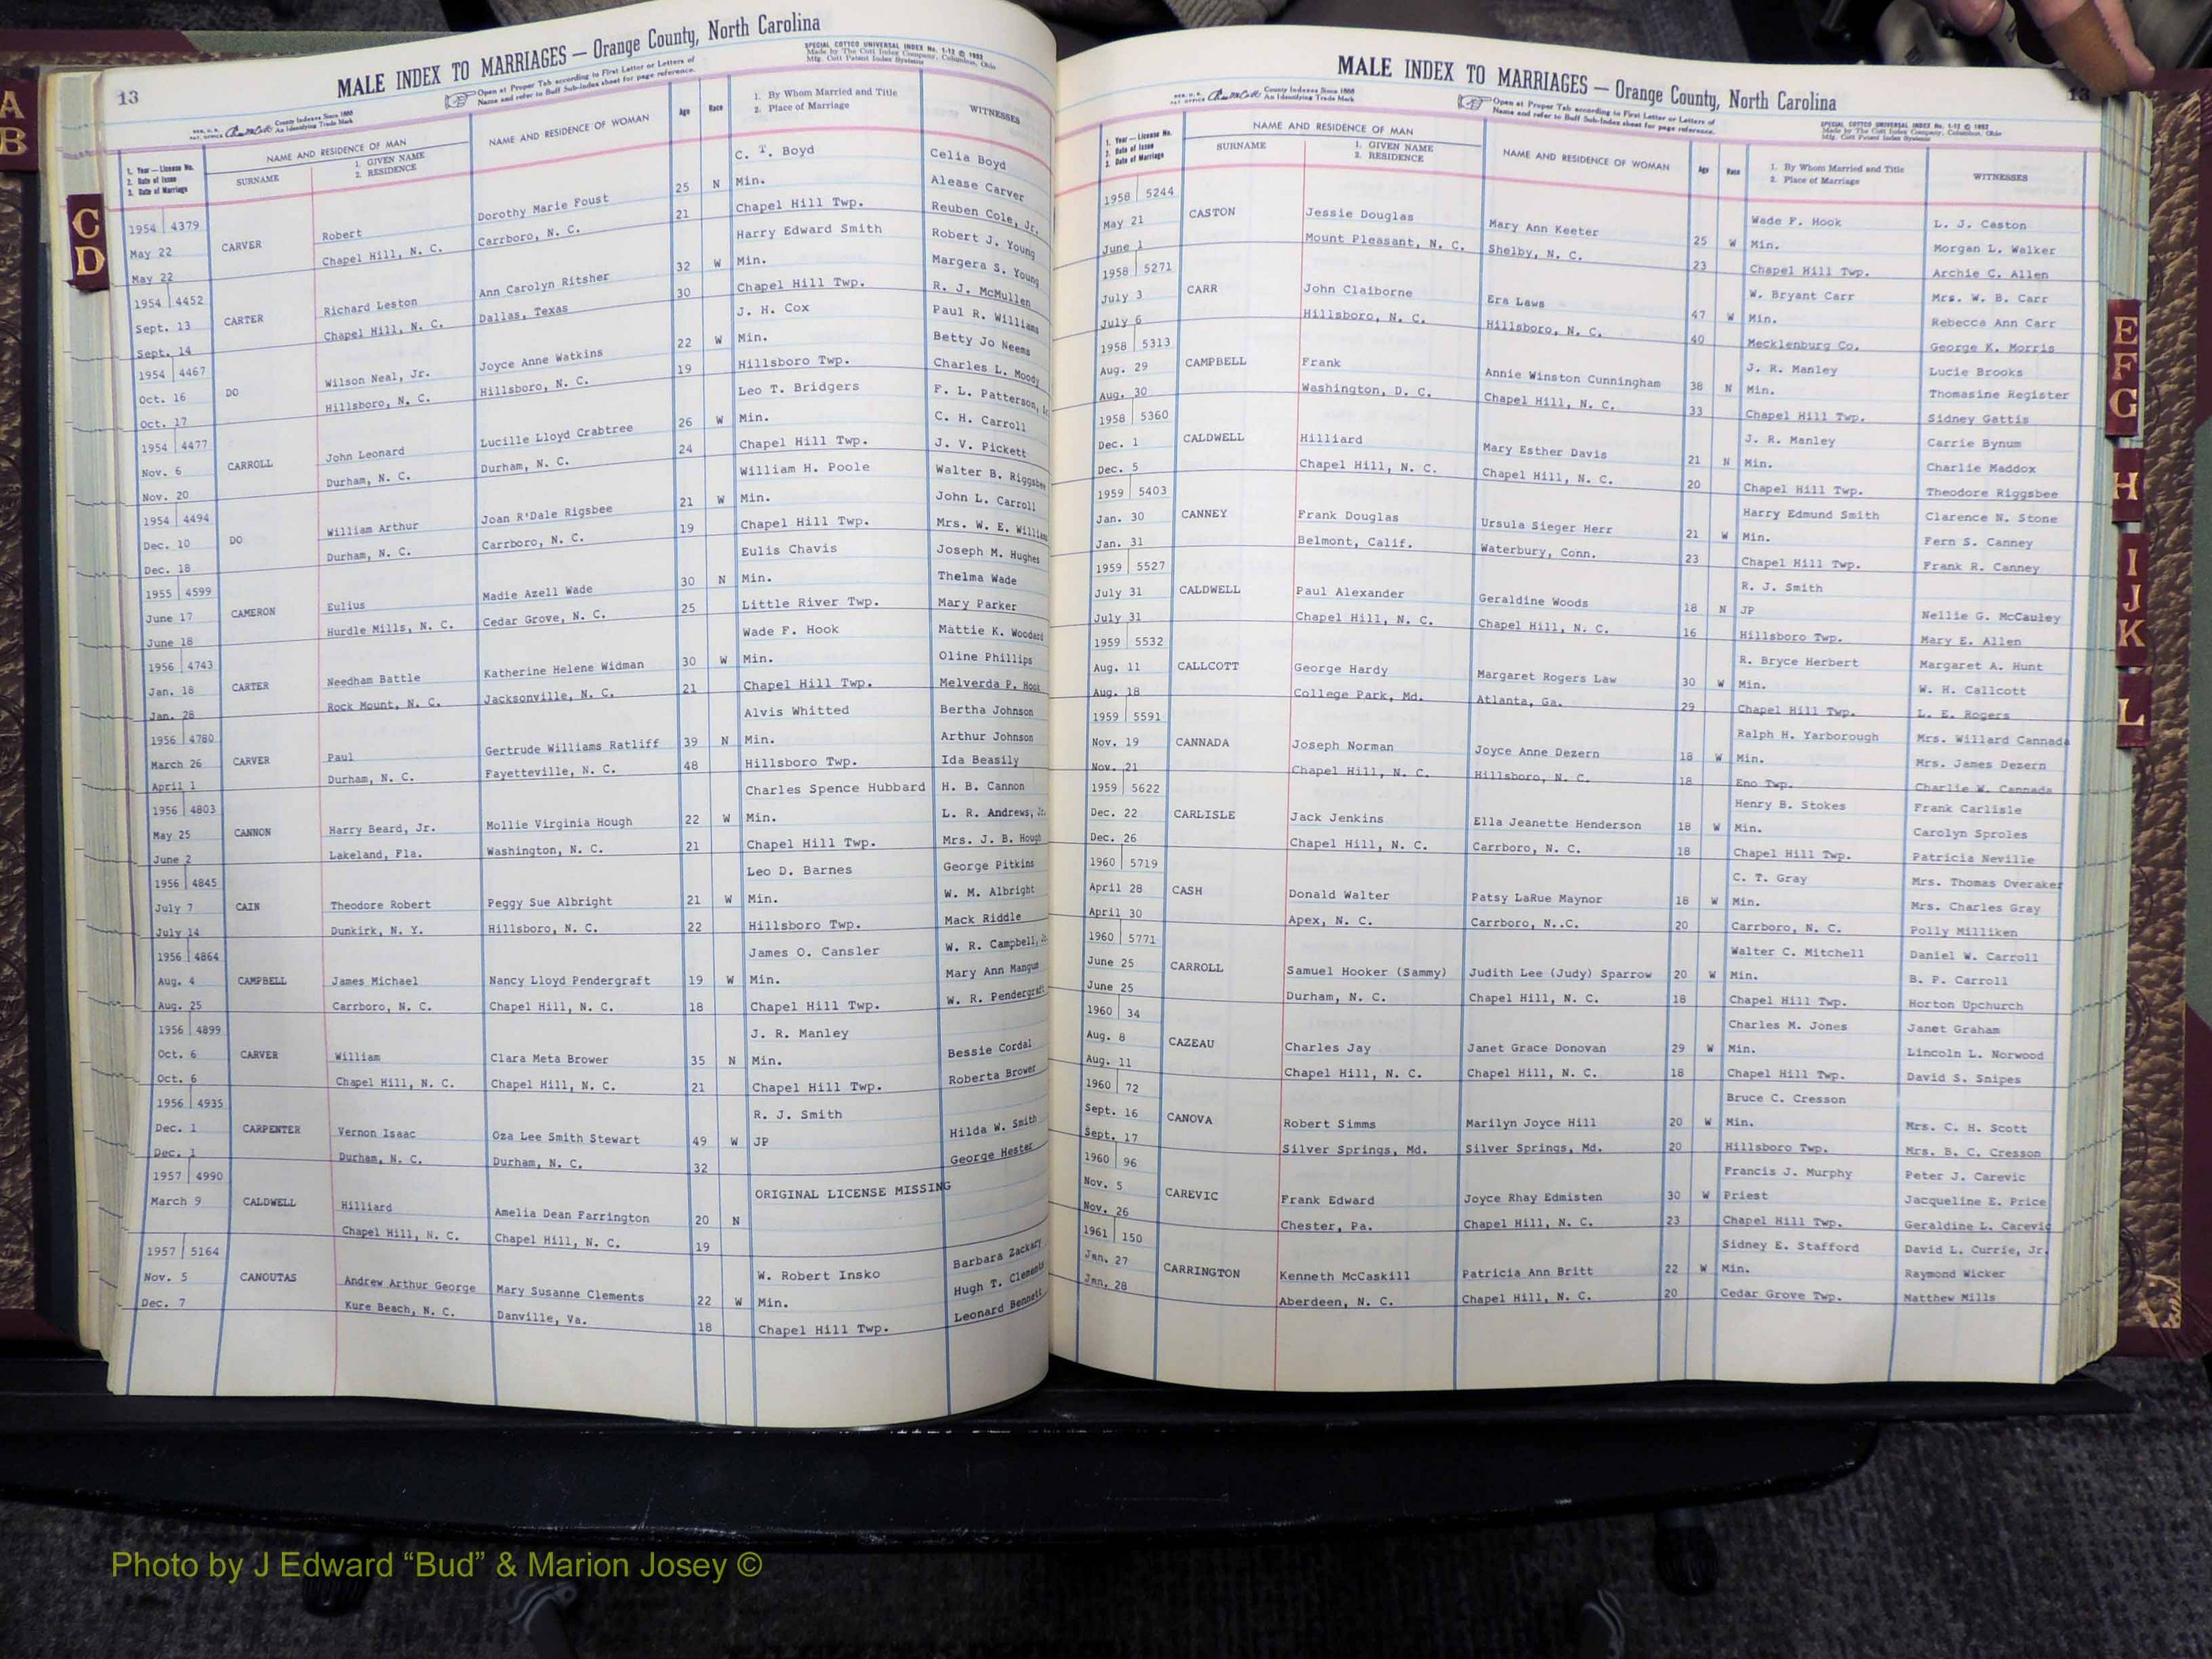 13
MALE INDEX TO MARRIAGES — Orange County, North Carolina
Open at Proper Tab according to First Letter or Letters of
Name and refer to Buff Sub-Index sheet for page reference.
SPECIAL COTTCO UNIVERSAL INDEX No. 1-12 © 1952
Made by The Cott Index Company, Columbus, Ohio
Mfg. Cott Patent Index Systems
County Indexes Since 1888
An Identifying Trade Mark
1. Year — License No.
2. Date of Issue
3. Date of Marriage
NAME AND RESIDENCE OF MAN
SURNAME
1. GIVEN NAME
2. RESIDENCE
NAME AND RESIDENCE OF WOMAN
Age
Race
1. By Whom Married and Title
2. Place of Marriage
WITNESSES
1954 4379 C. T. Boyd Celia Boyd
May 22 CARVER Robert Dorothy Marie Foust 25 N Min. Alease Carver
May 22 Chapel Hill, N. C. Carrboro, N. C. 21 Chapel Hill Twp. Reuben Cole, Jr.
1954 4452 Harry Edward Smith Robert J. Young
Sept. 13 CARTER Richard Leston Ann Carolyn Ritsher 32 W Min. Margera S. Young
Sept. 14 Chapel Hill, N. C. Dallas, Texas 30 Chapel Hill Twp. R. J. McMullen
1954 4467 J. H. Cox Paul R. Williams
Oct. 16 DO Wilson Neal, Jr. Joyce Anne Watkins 22 W Min. Betty Jo Neems
Oct. 17 Hillsboro, N. C. Hillsboro, N. C. 19 Hillsboro Twp. Charles L. Moody
1954 4477 Leo T. Bridgers F. L. Patterson,
Nov. 6 CARROLL John Leonard Lucille Lloyd Crabtree 26 W Min. C. H. Carroll
Nov. 20 Durham, N. C. Durham, N. C. 24 Chapel Hill Twp. J. V. Pickett
1954 4494 William H. Poole Walter B. Riggsbee
Dec. 10 DO William Arthur Joan R'Dale Rigsbee 21 W Min. John L. Carroll
Dec. 18 Durham, N. C. Carrboro, N. C. 19 Chapel Hill Twp. Mrs. W. E. Williams
1955 4599 Eulis Chavis Joseph M. Hughes
June 17 CAMERON Eulius Madie Azell Wade 30 N Min. Thelma Wade
June 18 Hurdle Mills, N. C. Cedar Grove, N. C. 25 Little River Twp. Mary Parker
1956 4743 Wade F. Hook Mattie K. Woodard
Jan. 18 CARTER Needham Battle Katherine Helene Widman 30 W Min. Oline Phillips
Jan. 28 Rock Mount, N. C. Jacksonville, N. C. 21 Chapel Hill Twp. Melverda P. Hook
1956 4780 Alvis Whitted Bertha Johnson
March 26 CARVER Paul Gertrude Williams Ratliff 39 N Min. Arthur Johnson
April 1 Durham, N. C. Fayetteville, N. C. 48 Hillsboro Twp. Ida Beasily
1956 4803 Charles Spence Hubbard H. B. Cannon
May 25 CANNON Harry Beard, Jr. Mollie Virginia Hough 22 W Min. L. R. Andrews, Jr.
June 2 Lakeland, Fla. Washington, N. C. 21 Chapel Hill Twp. Mrs. J. B. Hough
1956 4845 Leo D. Barnes George Pitkins
July 7 CAIN Theodore Robert Peggy Sue Albright 21 W Min. W. M. Albright
July 14 Dunkirk, N. Y. Hillsboro, N. C. 22 Hillsboro Twp. Mack Riddle
1956 4864 James O. Cansler W. R. Campbell, Jr.
Aug. 4 CAMPBELL James Michael Nancy Lloyd Pendergraft 19 W Min. Mary Ann Mangum
Aug. 25 Carrboro, N. C. Chapel Hill, N. C. 18 Chapel Hill Twp. W. R. Pendergraft
1956 4899 J. R. Manley
Oct. 6 CARVER William Clara Meta Brower 35 N Min. Bessie Cordal
Oct. 6 Chapel Hill, N. C. Chapel Hill, N. C. 21 Chapel Hill Twp. Roberta Brower
1956 4935 R. J. Smith
Dec. 1 CARPENTER Vernon Isaac Oza Lee Smith Stewart 49 W JP Hilda W. Smith
Dec. 1 Durham, N. C. Durham, N. C. 32 George Hester
1957 4990 ORIGINAL LICENSE MISSING
March 9 CALDWELL Hilliard Amelia Dean Farrington 20 N
Chapel Hill, N. C. Chapel Hill, N. C. 19
1957 5164 W. Robert Insko Barbara Zackary
Nov. 5 CANOUTAS Andrew Arthur George Mary Susanne Clements 22 W Min. Hugh T. Clements
Dec. 7 Kure Beach, N. C. Danville, Va. 18 Chapel Hill Twp. Leonard Bennett
13
MALE INDEX TO MARRIAGES — Orange County, North Carolina
County Indexes Since 1888
An Identifying Trade Mark
Open at Proper Tab according to First Letter or Letters of
Name and refer to Buff Sub-Index sheet for page reference.
SPECIAL COTTCO UNIVERSAL INDEX No. 1-12 © 1952
Made by The Cott Index Company, Columbus, Ohio
Mfg. Cott Patent Index Systems
1. Year — License No.
2. Date of Issue
3. Date of Marriage
NAME AND RESIDENCE OF MAN
SURNAME
1. GIVEN NAME
2. RESIDENCE
NAME AND RESIDENCE OF WOMAN
Age
Race
1. By Whom Married and Title
2. Place of Marriage
WITNESSES
1958 5244 Wade F. Hook L. J. Caston
May 21 CASTON Jessie Douglas Mary Ann Keeter 25 W Min. Morgan L. Walker
June 1 Mount Pleasant, N. C. Shelby, N. C. 23 Chapel Hill Twp. Archie C. Allen
1958 5271 W. Bryant Carr Mrs. W. B. Carr
July 3 CARR John Claiborne Era Laws 47 W Min. Rebecca Ann Carr
July 6 Hillsboro, N. C. Hillsboro, N. C. 40 Mecklenburg Co. George K. Morris
1958 5313 J. R. Manley Lucie Brooks
Aug. 29 CAMPBELL Frank Annie Winston Cunningham 38 N Min. Thomasine Register
Aug. 30 Washington, D. C. Chapel Hill, N. C. 33 Chapel Hill Twp. Sidney Gattis
1958 5360 J. R. Manley Carrie Bynum
Dec. 1 CALDWELL Hilliard Mary Esther Davis 21 N Min. Charlie Maddox
Dec. 5 Chapel Hill, N. C. Chapel Hill, N. C. 20 Chapel Hill Twp. Theodore Riggsbee
1959 5403 Harry Edmund Smith Clarence N. Stone
Jan. 30 CANNEY Frank Douglas Ursula Sieger Herr 21 W Min. Fern S. Canney
Jan. 31 Belmont, Calif. Waterbury, Conn. 23 Chapel Hill Twp. Frank R. Canney
1959 5527 R. J. Smith
July 31 CALDWELL Paul Alexander Geraldine Woods 18 N JP Nellie G. McCauley
July 31 Chapel Hill, N. C. Chapel Hill, N. C. 16 Hillsboro Twp. Mary E. Allen
1959 5532 R. Bryce Herbert Margaret A. Hunt
Aug. 11 CALLCOTT George Hardy Margaret Rogers Law 30 W Min. W. H. Callcott
Aug. 18 College Park, Md. Atlanta, Ga. 29 Chapel Hill Twp. L. E. Rogers
1959 5591 Ralph H. Yarborough Mrs. Willard Cannada
Nov. 19 CANNADA Joseph Norman Joyce Anne Dezern 18 W Min. Mrs. James Dezern
Nov. 21 Chapel Hill, N. C. Hillsboro, N. C. 18 Eno Twp. Charlie W. Cannada
1959 5622 Henry B. Stokes Frank Carlisle
Dec. 22 CARLISLE Jack Jenkins Ella Jeanette Henderson 18 W Min. Carolyn Sproles
Dec. 26 Chapel Hill, N. C. Carrboro, N. C. 18 Chapel Hill Twp. Patricia Neville
1960 5719 C. T. Gray Mrs. Thomas Overaker
April 28 CASH Donald Walter Patsy LaRue Maynor 18 W Min. Mrs. Charles Gray
April 30 Apex, N. C. Carrboro, N..C. 20 Carrboro, N. C. Polly Milliken
1960 5771 Walter C. Mitchell Daniel W. Carroll
June 25 CARROLL Samuel Hooker (Sammy) Judith Lee (Judy) Sparrow 20 W Min. B. F. Carroll
June 25 Durham, N. C. Chapel Hill, N. C. 18 Chapel Hill Twp. Horton Upchurch
1960 34 Charles M. Jones Janet Graham
Aug. 8 CAZEAU Charles Jay Janet Grace Donovan 29 W Min. Lincoln L. Norwood
Aug. 11 Chapel Hill, N. C. Chapel Hill, N. C. 18 Chapel Hill Twp. David S. Snipes
1960 72 Bruce C. Cresson
Sept. 16 CANOVA Robert Simms Marilyn Joyce Hill 20 W Min. Mrs. C. H. Scott
Sept. 17 Silver Springs, Md. Silver Springs, Md. 20 Hillsboro Twp. Mrs. B. C. Cresson
1960 96 Francis J. Murphy Peter J. Carevic
Nov. 5 CAREVIC Frank Edward Joyce Rhay Edmisten 30 W Priest Jacqueline E. Price
Nov. 26 Chester, Pa. Chapel Hill, N. C. 23 Chapel Hill Twp. Geraldine L. Carevic
1961 150 Sidney E. Stafford David L. Currie, Jr.
Jan. 27 CARRINGTON Kenneth McCaskill Patricia Ann Britt 22 W Min. Raymond Wicker
Jan. 28 Aberdeen, N. C. Chapel Hill, N. C. 20 Cedar Grove Twp. Matthew Mills
A
B
C
D
E
F
G
H
I
J
K
L
Photo by J Edward “Bud” & Marion Josey ©